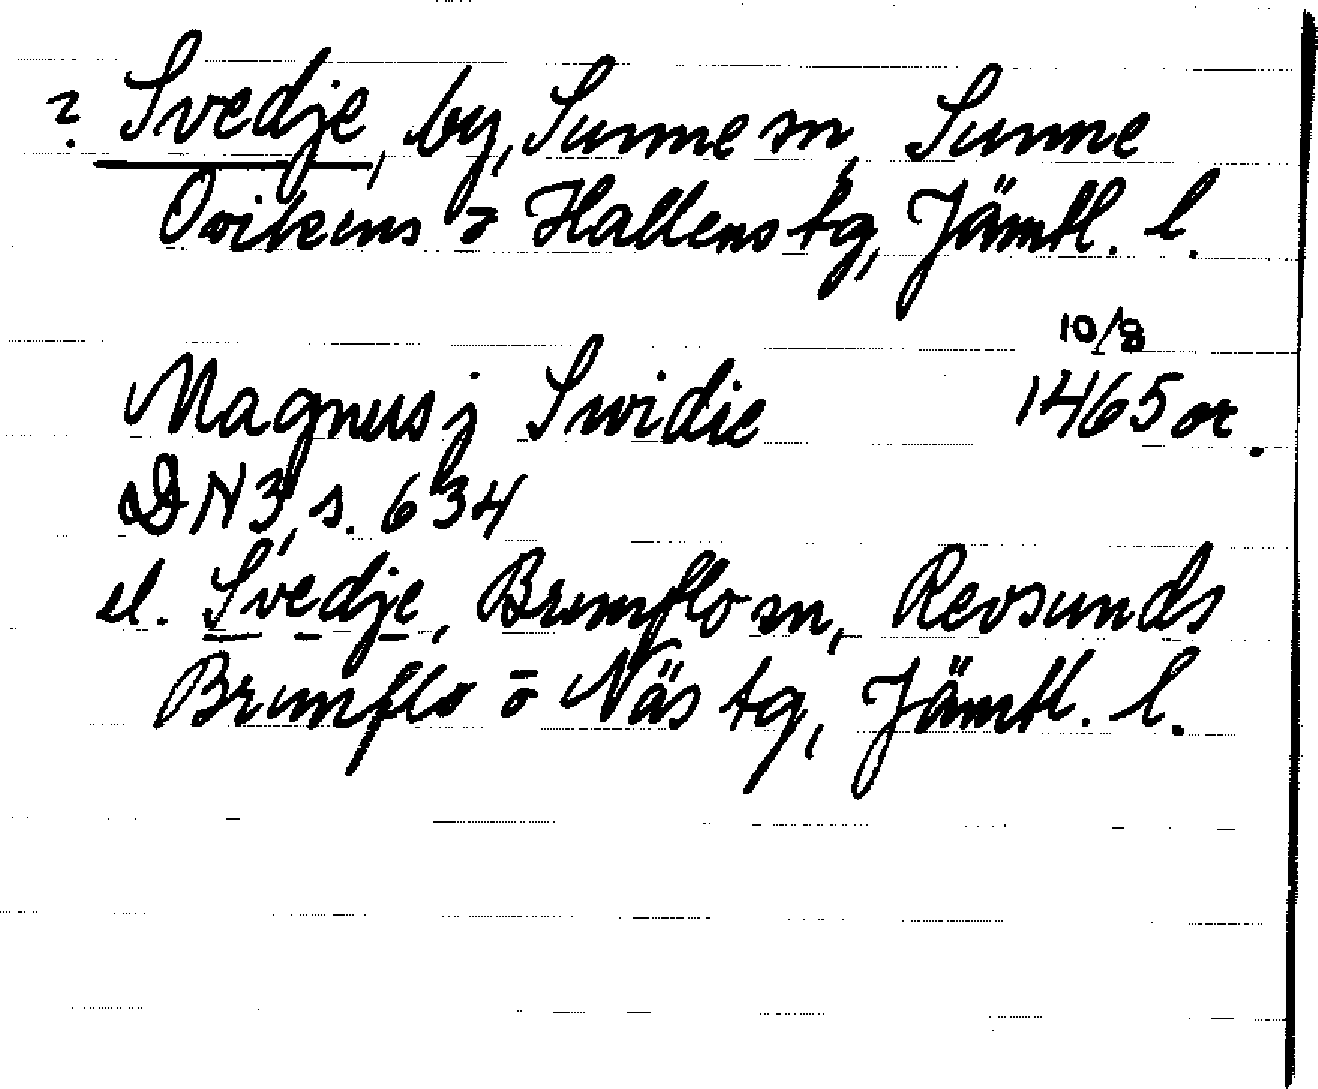 ? Svedje, by, Sunne sn, Sunne
Ovikens o Hallens tg, Jämtl. l.
10/8
Magnus j Swidie 1465 or.
DN3, s. 634
el. Svedje, Brunflo sn, Revsunds
Brunflo o Näs tg, Jämtl. l.